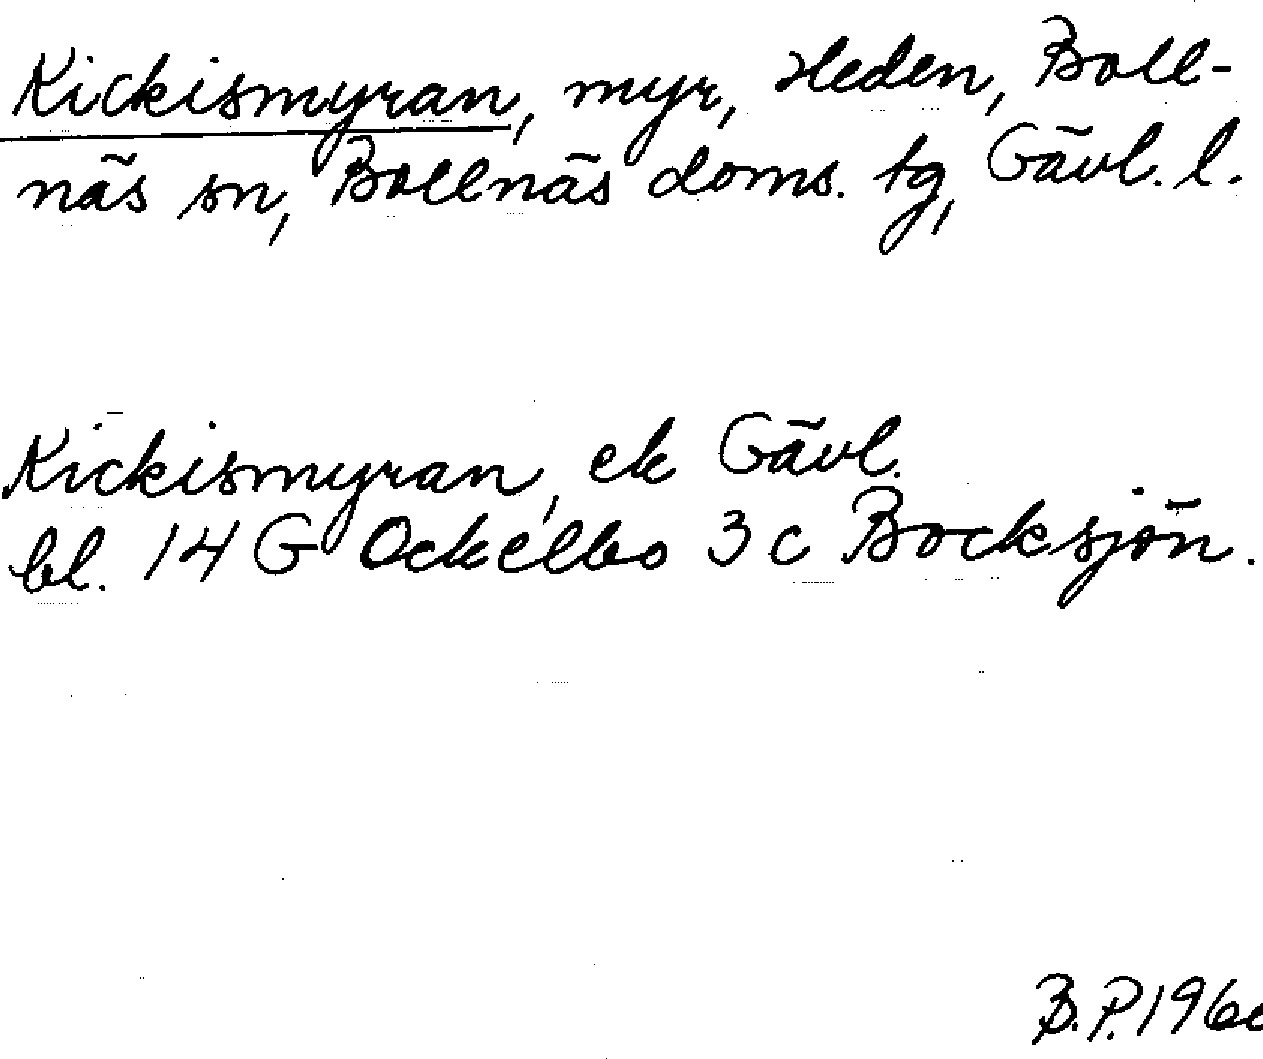 Kickismyran, myr, Heden, Boll-
näs sn, Bollnäs doms. tg, Gävl. l.
Kickismyran, ek Gävl.
bl. 14 G Ockelbo 3 c Bocksjön.
B.P.